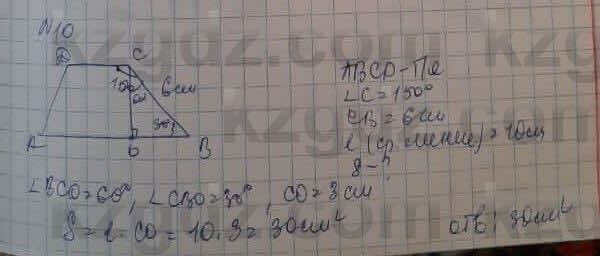 N10
D C
150° 60° 6см
30°
A O B
ABCD-
∠C=150°
CB=6см
ℓ(ср линие)=10см
S-?
∠BCO=60°, ∠CBO=30°, CO=3см
S=ℓ·CO=10·3=30см²
отв: 30см²
kzgdz.com